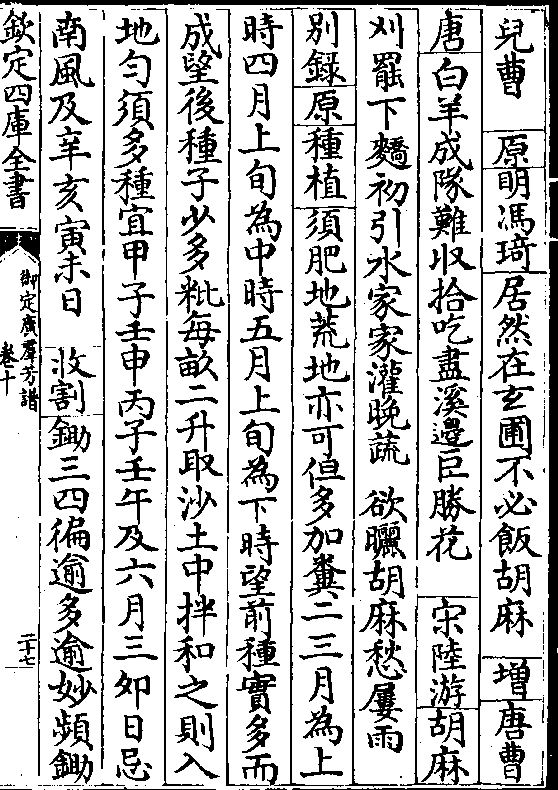 兒曹　原明馮琦居然在玄圃不必飯胡麻　增唐曹
唐白羊成隊難收拾吃盡溪邊巨勝花　宋陸游胡麻
刈罷下麵初引水家家灌晚蔬　欲曬胡麻愁屢雨
別錄原種植須肥地荒地亦可但多加糞二三月為上
時四月上旬為中時五月上旬為下時望前種實多而
成望後種子少多粃每畝二升取沙土中拌和之則入
地勻須多種宜甲子壬申丙子壬午及六月三卯日忌
南風及辛亥寅未日　收割鋤三四徧逾多逾妙頻鋤
欽定四庫全書
御定廣羣芳譜
卷十
二十七